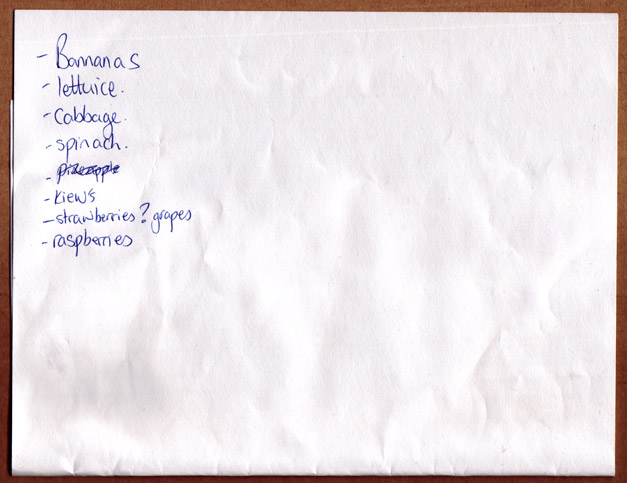 - Bannanas
- lettuice.
- Cabbage.
- spinach.
- pineapple
- kiew's
- strawberries? grapes
- raspberries